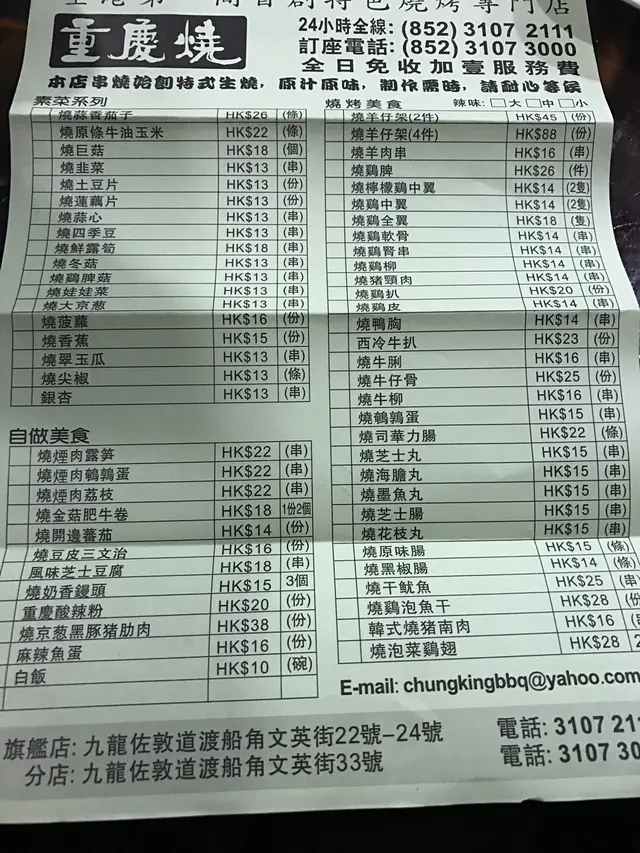 全港第一間首創特色燒烤專門店
重慶燒
24小時全線: (852) 3107 2111
訂座電話: (852) 3107 3000
全日免收加壹服務費
本店串燒始創特式生燒，原汁原味，制作需時，請耐心等候
素菜系列
燒蒜香茄子 HK$26 (條)
燒原條牛油玉米 HK$22 (條)
燒巨菇 HK$18 (個)
燒韭菜 HK$13 (串)
燒土豆片 HK$13 (份)
燒蓮藕片 HK$13 (份)
燒蒜心 HK$13 (串)
燒四季豆 HK$13 (串)
燒鮮露筍 HK$18 (串)
燒冬菇 HK$13 (串)
燒鷄脾菇 HK$13 (串)
燒娃娃菜 HK$13 (串)
燒大京葱 HK$13 (串)
燒菠蘿 HK$16 (份)
燒香蕉 HK$15 (份)
燒翠玉瓜 HK$13 (串)
燒尖椒 HK$13 (條)
銀杏 HK$13 (串)
自做美食
燒煙肉露笋 HK$22 (串)
燒煙肉鵪鶉蛋 HK$22 (串)
燒煙肉荔枝 HK$22 (串)
燒金菇肥牛卷 HK$18 1份2個
燒開邊蕃茄 HK$14 (份)
燒豆皮三文治 HK$16 (份)
風味芝士豆腐 HK$18 (串)
燒奶香饅頭 HK$15 3個
重慶酸辣粉 HK$20 (份)
燒京葱黑豚猪肋肉 HK$38 (份)
麻辣魚蛋 HK$16 (份)
白飯 HK$10 (碗)
燒烤美食 辣味: 大 中 小
燒羊仔架(2件) HK$45 (份)
燒羊仔架(4件) HK$88 (份)
燒羊肉串 HK$16 (串)
燒鷄脾 HK$26 (件)
燒檸檬鷄中翼 HK$14 (2隻)
燒鷄中翼 HK$14 (2隻)
燒鷄全翼 HK$18 (隻)
燒鷄軟骨 HK$14 (串)
燒鷄腎串 HK$14 (串)
燒鷄柳 HK$14 (串)
燒猪頸肉 HK$14 (串)
燒鷄扒 HK$20 (份)
燒鷄皮 HK$14 (串)
燒鴨胸 HK$14 (串)
西冷牛扒 HK$23 (份)
燒牛脷 HK$16 (串)
燒牛仔骨 HK$25 (份)
燒牛柳 HK$16 (串)
燒鵪鶉蛋 HK$15 (串)
燒司華力腸 HK$22 (條)
燒芝士丸 HK$15 (串)
燒海膽丸 HK$15 (串)
燒墨魚丸 HK$15 (串)
燒芝士腸 HK$15 (串)
燒花枝丸 HK$15 (串)
燒原味腸 HK$15 (條)
燒黑椒腸 HK$14 (條)
燒干魷魚 HK$25 (串)
燒鷄泡魚干 HK$28 (份
韓式燒猪南肉 HK$16 (串
燒泡菜鷄翅 HK$28 2
E-mail: chungkingbbq@yahoo.com
旗艦店: 九龍佐敦道渡船角文英街22號-24號 電話: 3107 21
分店: 九龍佐敦道渡船角文英街33號 電話: 3107 30